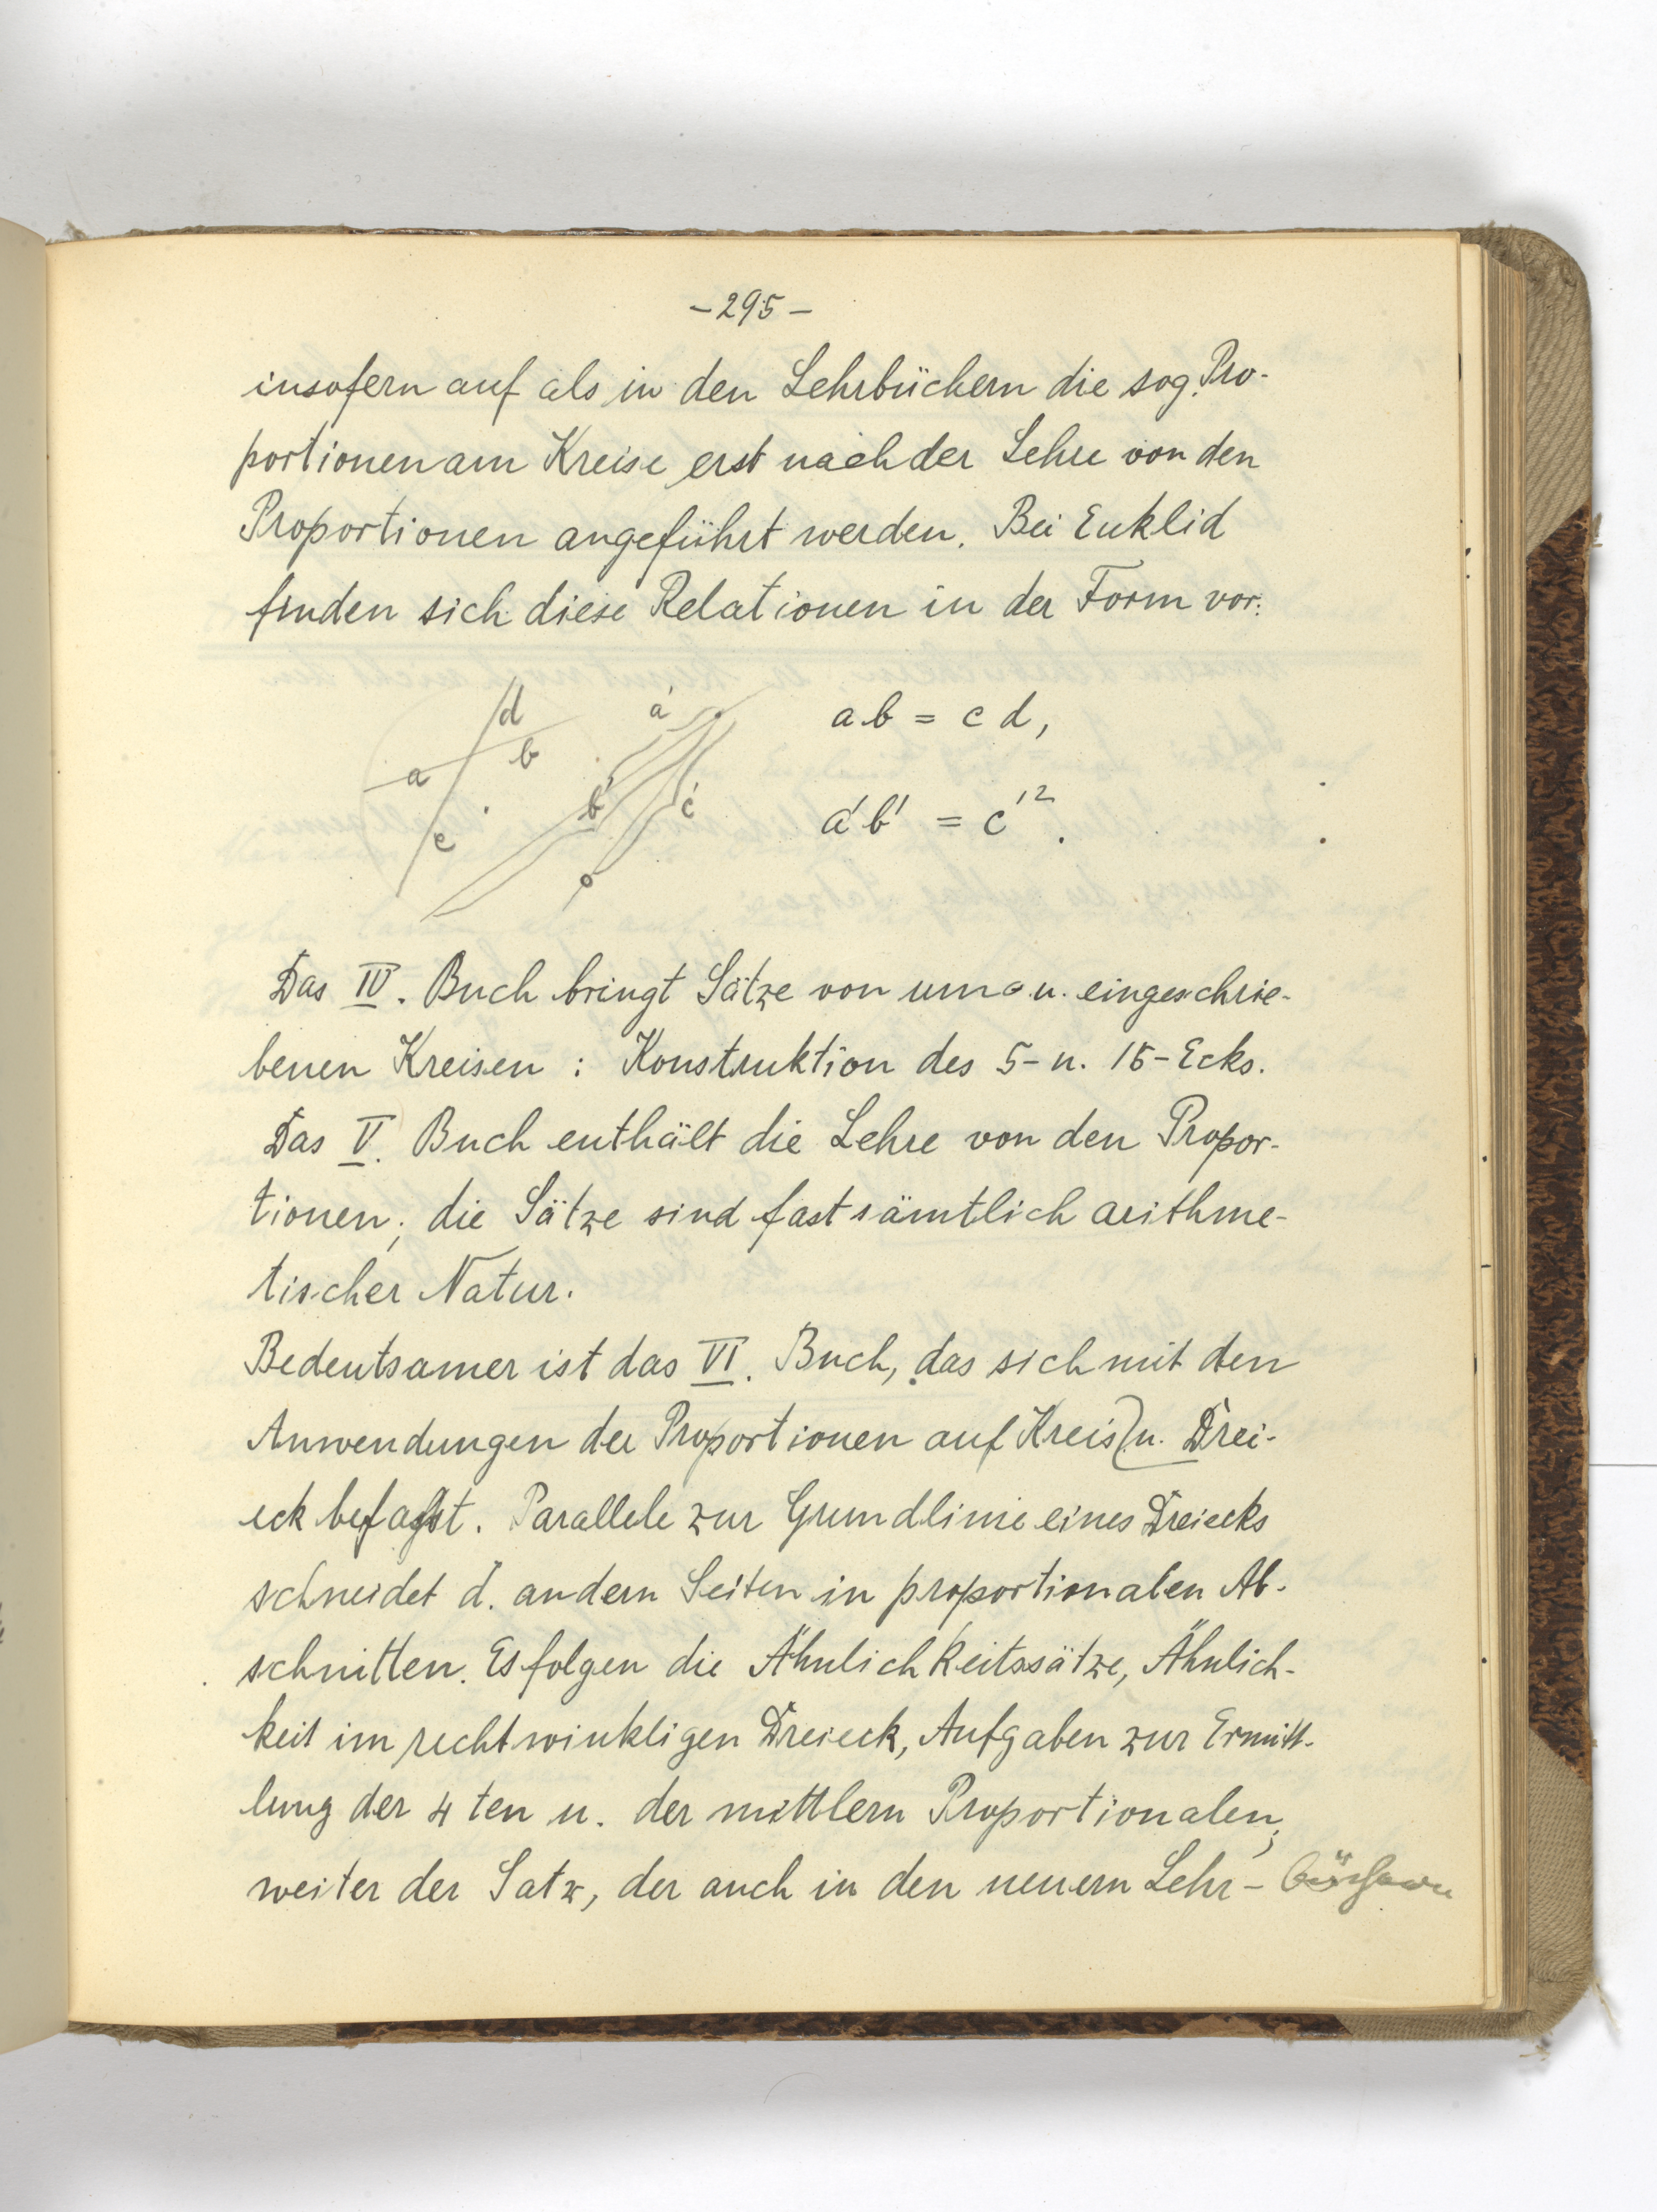 -295-
insofern auf als in den Lehrbüchern die sog. Pro-
portionen am Kreise erst nach der Lehre von den
Proportionen angeführt werden. Bei Euklid
finden sich diese Relationen in der Form vor:
d a' ab = cd,
b
a b' c' a'b' = c'².
c
Das IV. Buch bringt Sätze von um- u. eingeschrie-
benen Kreisen : Konstruktion des 5- u. 15-Ecks.
Das V. Buch enthält die Lehre von den Propor-
tionen; die Sätze sind fast sämtlich arithme-
tischer Natur.
Bedeutsamer ist das VI. Buch, das sich mit den
Anwendungen der Proportionen auf Kreis u. Drei-
eck befasst. Parallele zur Grundlinie eines Dreiecks
schneidet d. andern Seiten in proportionalen Ab-
schnitten. Es folgen die Ähnlichkeitssätze, Ähnlich-
keit im rechtwinkligen Dreieck, Aufgaben zur Ermitt-
lung der 4ten u. der mittlern Proportionalen;
weiter der Satz, der auch in den neuern Lehr- büchern